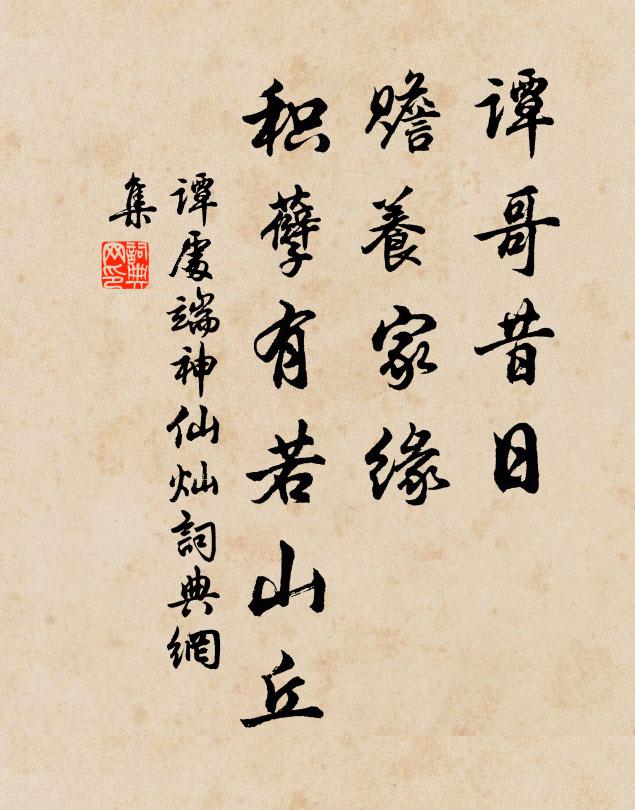 谭哥昔日
赡養家缘
积孽有若山丘
谭處端神仙灿詞典網
集
詞典网印